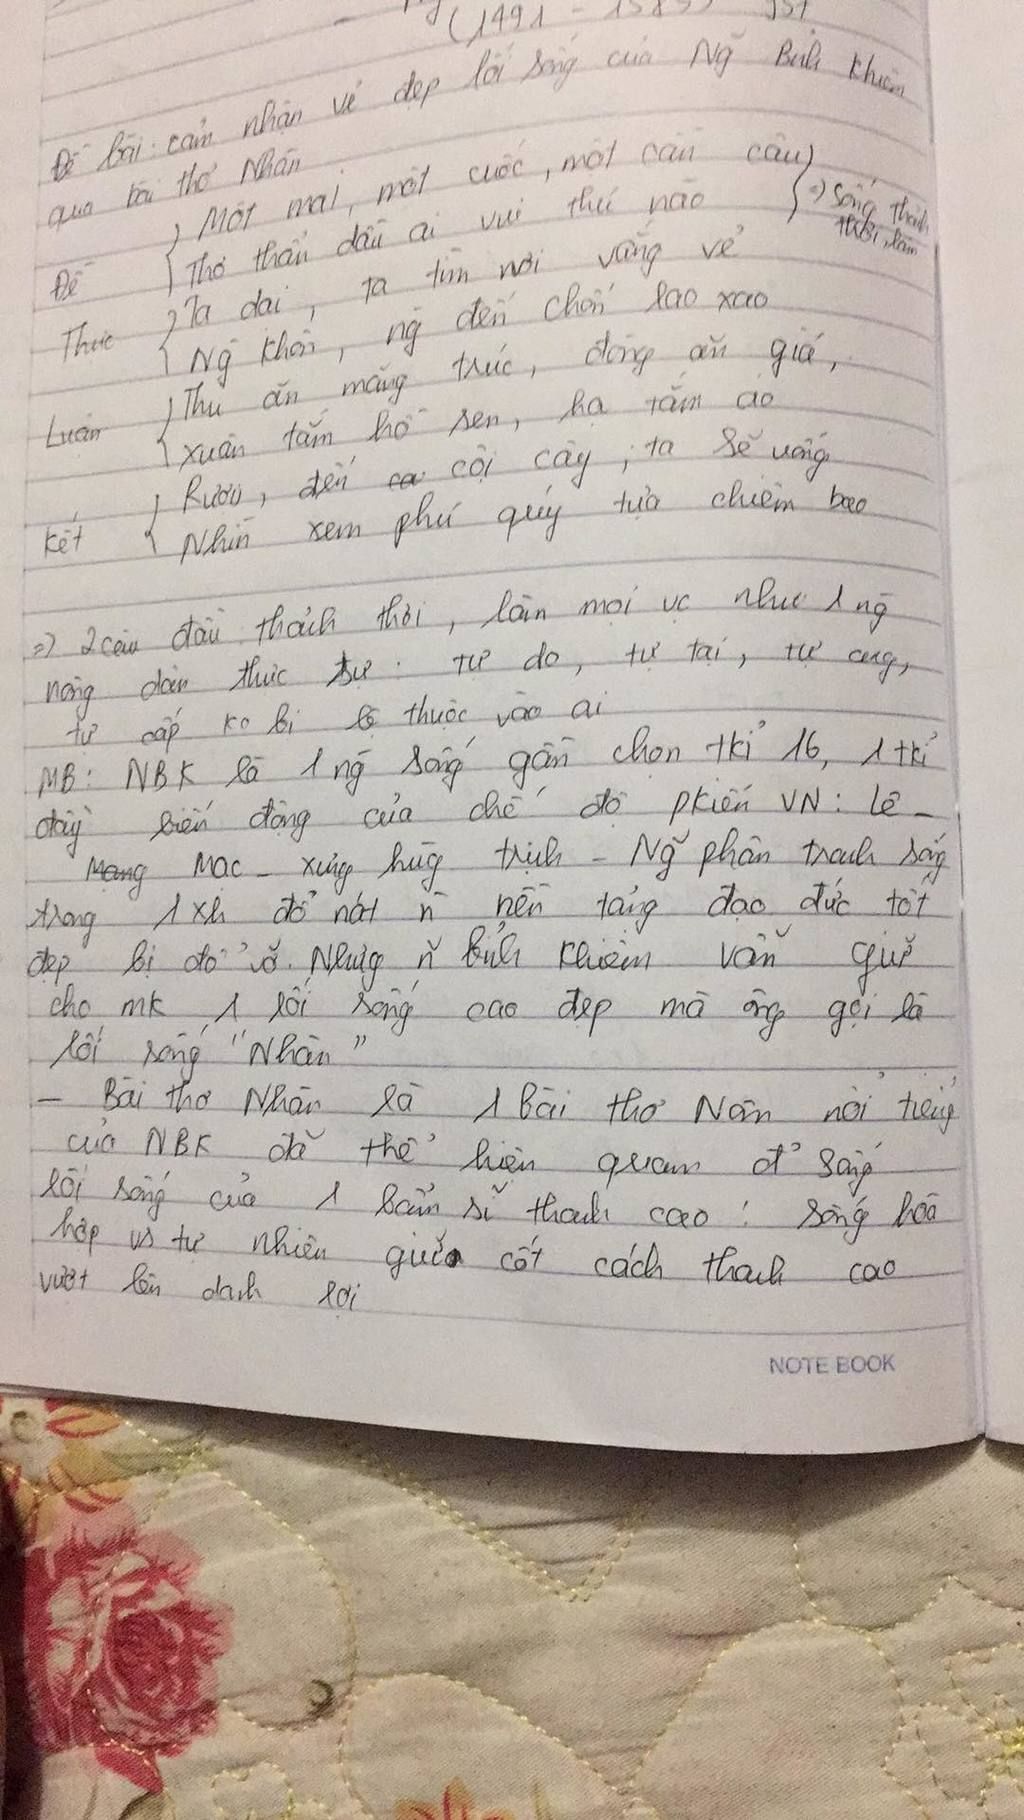 (1491 - 1585)
Đề bài: cảm nhận vẻ đẹp lối sống của Ng Bỉnh Khiêm
qua bài thơ Nhàn
Một mai, một cuốc, một cần câu
Đề Thơ thẩn dầu ai vui thú nào => Sống thảnh thơi, làm
Ta dại, ta tìm nơi vắng vẻ
Thực Ng khôn, ng đến chốn lao xao
Thu ăn măng trúc, đông ăn giá,
Luận xuân tắm hồ sen, hạ tắm ao
Rượu, đến cội cây, ta sẽ uống
Kết Nhìn xem phú quý tựa chiêm bao
=> 2 câu đầu thảnh thơi, làm mọi vc như 1 ng
nông dân thực sự: tự do, tự tại, tự cung,
tự cấp ko bị lệ thuộc vào ai
MB: NBK là 1 ng sống gần chọn tkỉ 16, 1 tkỉ
đầy biến động của chế độ pkiến VN: Lê -
Mạc - xưng hùg trịnh - Ng phân tranh sống
trong 1 xh đổ nát n nền tảng đạo đức tốt
đẹp bị đổ vỡ. Nhưg n bỉnh khiêm vẫn giữ
cho mk 1 lối sống cao đẹp mà ông gọi là
lối sống "Nhàn"
- Bài thơ Nhàn là 1 Bài thơ Nôm nổi tiếng
của NBK đã thể hiện quan đ sống
lối sống của 1 bần sĩ thanh cao: sống hòa
hợp vs tự nhiên giữ cốt cách thanh cao
vượt lên danh lợi
NOTE BOOK